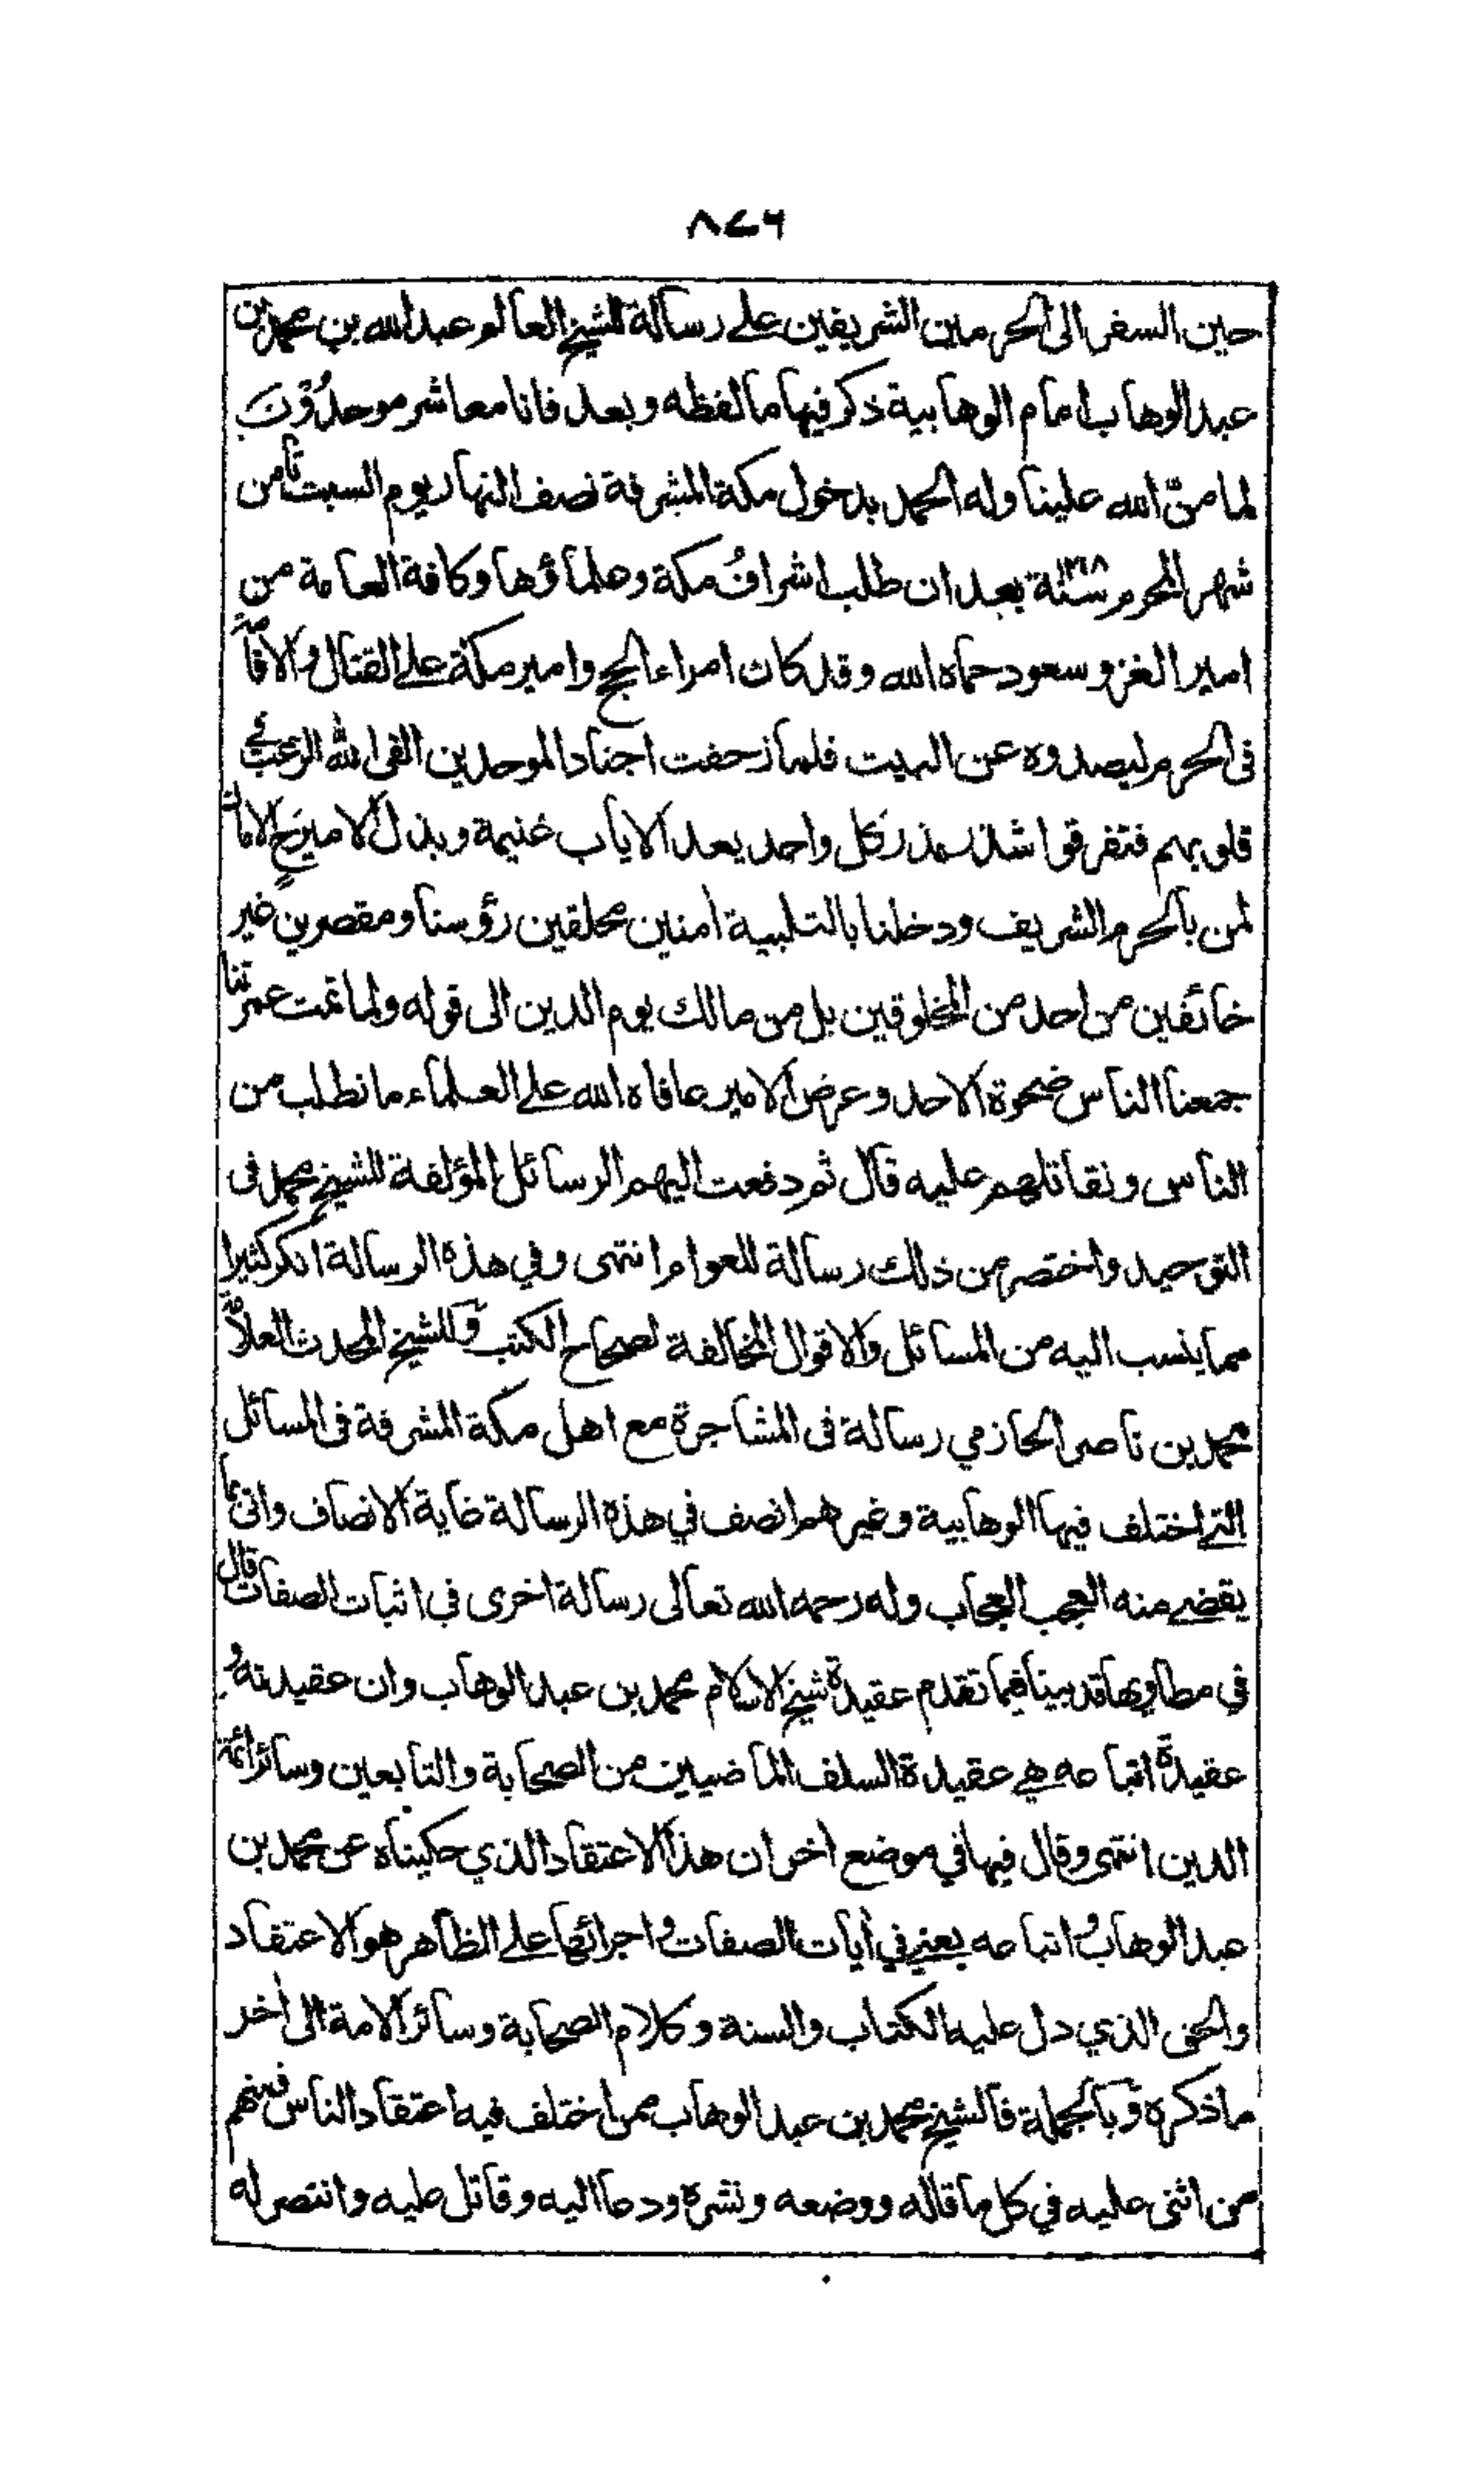 ٨٧٦
حين السفر الى الحرمين الشريفين على رسالة للشيخ العالم عبد الله بن محمد بن
عبد الوهاب امام الوهابية ذكر فيها ما لفظه وبعد فانا معاشر موحدُوْن
لما منّ الله علينا وله الحمد بدخول مكة المشرفة نصف النهار يوم السبت ثامن
شهر المحرم سنة بعد ان طلب اشرافُ مكة وعلماؤها وكافة العامة من
امير الغزو سعود حماه الله وقد كان امراء الحج وامير مكة على القتال والاقامة
فى الحرم ليصدوه عن البيت فلما زحفت اجناد الموحدين القى الله الرعب في
قلوبهم فتفرقوا شذر مذر كل واحد يعد الاياب غنيمة وبذل الامير ح الامان
لمن بالحرم الشريف ودخلنا بالتلبية امنين محلقين رؤسنا ومقصرين غير
خائفين من احد من المخلوقين بل من مالك يوم الدين الى قوله ولما تمت عمرتنا
جمعنا الناس ضحوة الاحد وعرض الامير عافاه الله على العلماء ما نطلب من
الناس ونقاتلهم عليه قال ثم دفعت اليهم الرسائل المؤلفة للشيخ محمد فى
التوحيد واختصر من ذلك رسالة للعوام انتهى وفي هذه الرسالة انكر كثيرا
مما ينسب اليه من المسائل والاقوال المخالفة لصحاح الكتب وللشيخ المحدث العلامة
محمد بن ناصر الحازمي رسالة فى المشاجرة مع اهل مكة المشرفة فى المسائل
التي اختلف فيها الوهابية وغيرهم انصف في هذه الرسالة غاية الانصاف واتى بما
يقضي منه العجب العجاب وله رحمه الله تعالى رسالة اخرى في اثبات الصفات قال
في مطاويها قد بينا فيما تقدم عقيدة شيخ الاسلام محمد بن عبد الوهاب وان عقيدته و
عقيدةَ اتباعه هي عقيدة السلف الماضيين من الصحابة والتابعين وسائر ائمة
الدين انتهى وقال فيها في موضع اخر ان هذا الاعتقاد الذي حكيناه عن محمد بن
عبد الوهاب واتباعه يعني في أيات الصفات واجرائها على الظاهر هو الاعتقاد
والحق الذي دل عليه الكتاب والسنة وكلام الصحابة وسائر الامة الى أخر
ما ذكره وبالجملة فالشيخ محمد بن عبد الوهاب ممن اختلف فيه اعتقاد الناس فمنهم
من اثنى عليه في كل ما قاله ووضعه ونشره ودعا اليه وقاتل عليه وانتصر له